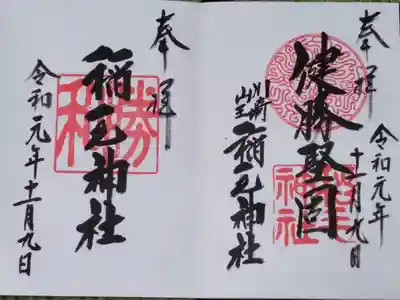 奉拝
健勝堅固
川崎
山王
稲毛神社
令和元年
十一月九日
奉拝
稲毛神社
勝
和
令和元年十一月九日